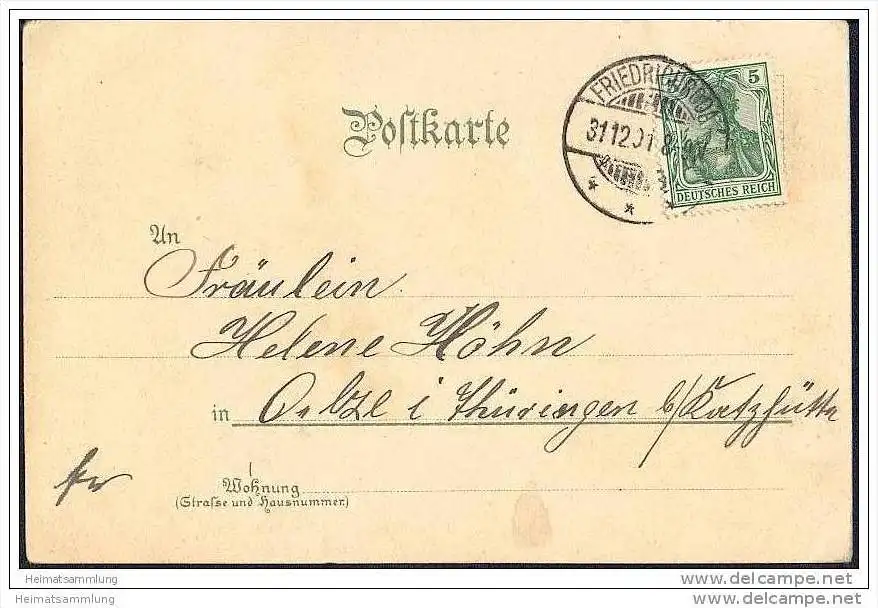 Postkarte
5
31.12.01.8-9N
DEUTSCHES REICH
An
Fräulein
Helene Höhn
in Oelze i Thüringen b/Katzhütte
Wohnung
(Strafse und Hausnummer.)
Heimatsammlung www.delcampe.net
Heimatsammlung www.delcampe.net